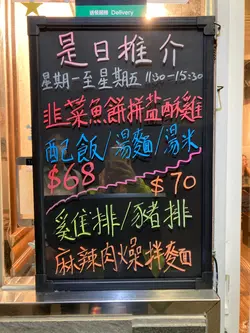 送餐服務 Delivery
是日推介
星期一至星期五 11:30-15:30
韭菜魚餅拼盐酥雞
配飯/湯麵/湯米
$68 $70
雞排/豬排
麻辣肉燥拌麵